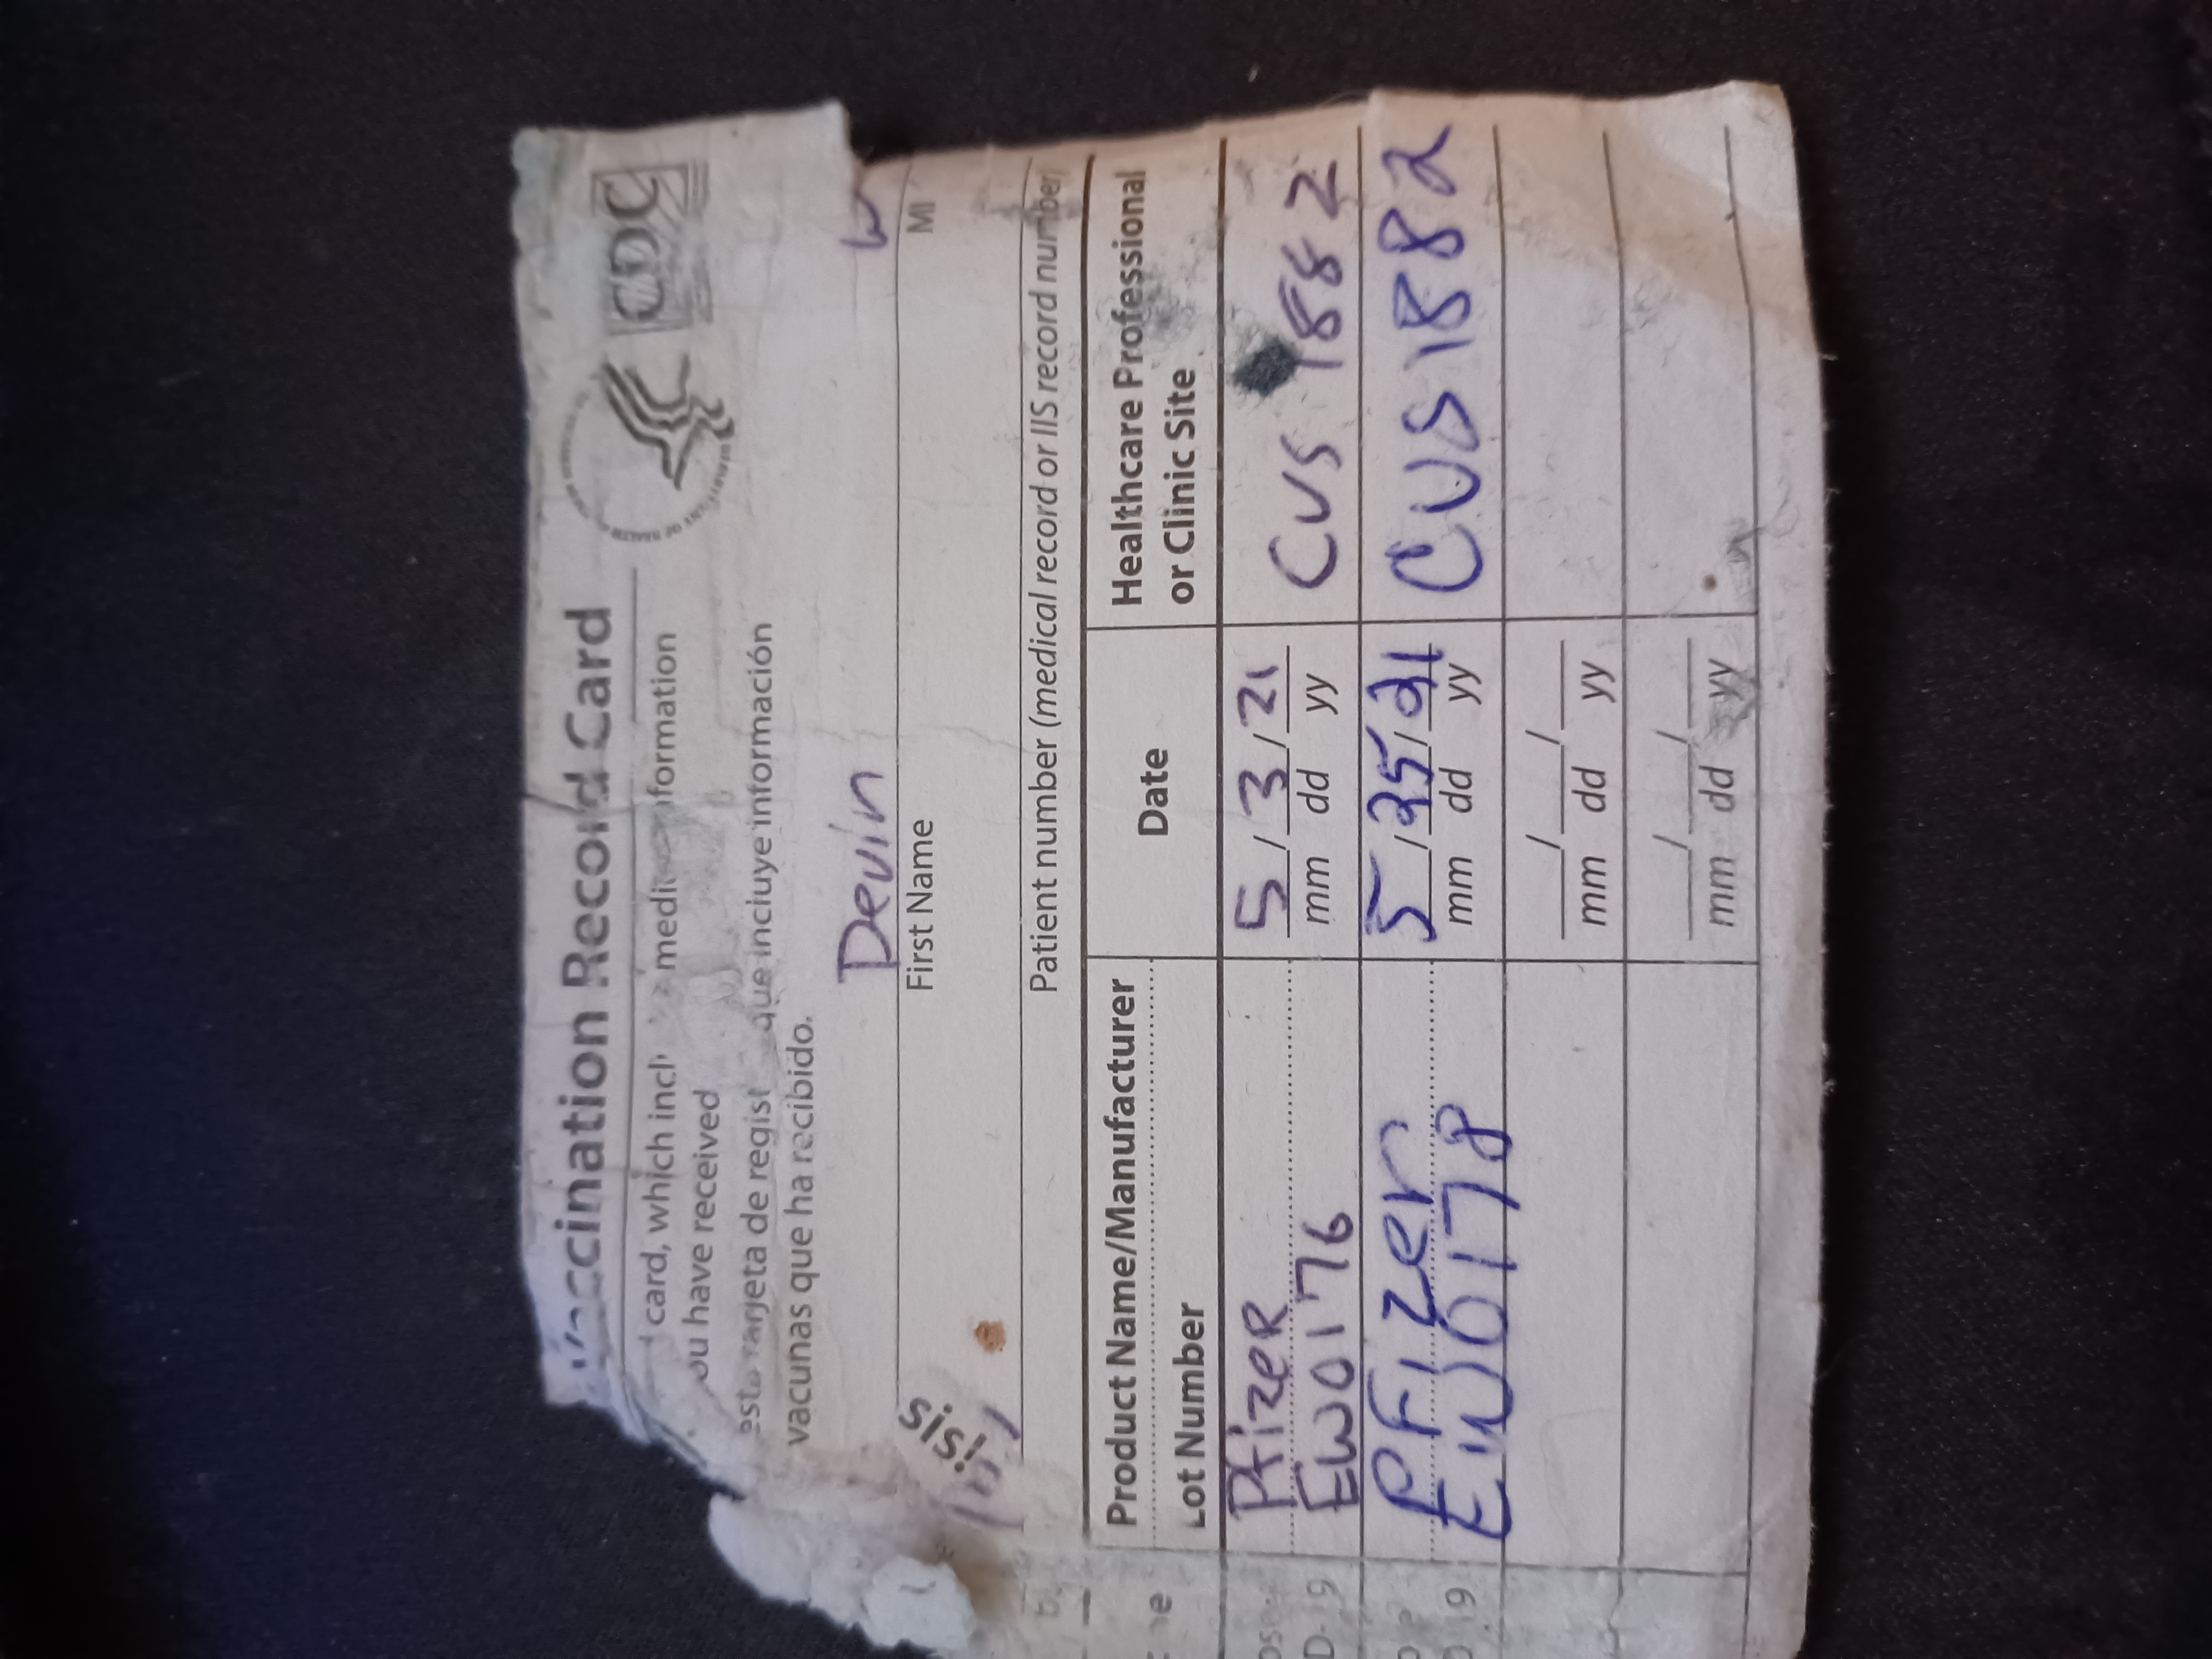 Vaccination Record Card
CDC
card, which incl medi formation
ou have received
esta tarjeta de regist que incluye información
vacunas que ha recibido.
Devin W
First Name MI
sis!
Patient number (medical record or IIS record number)
Product Name/Manufacturer
Lot Number
Date
Healthcare Professional
or Clinic Site
Pfizer
EW0176
5 / 3 / 21
mm dd yy
CVS 1882
D-19
PFizer
EW0178
5 / 25 / 21
mm dd yy
CVS 1882
19
/ /
mm dd yy
/ /
mm dd yy